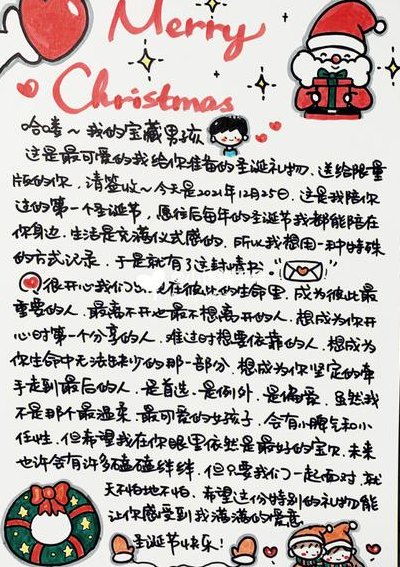 Merry
Christmas
哈喽~我的宝藏男孩
这是最可爱的我给你准备的圣诞礼物,送给限量
版的你,请签收~今天是2021年12月25日,这是我陪你
过的第一个圣诞节,愿往后每年的圣诞节我都能陪在
你身边,生活是充满仪式感的,所以我想用一种特殊
的方式记录,于是就有了这封情书。
很开心我们出现在彼此的生命里,成为彼此最
重要的人,最离不开也最不想离开的人,想成为你开
心时第一个分享的人,难过时想要依靠的人,想成为
你生命中无法缺少的那一部分,想成为你坚定的牵
手走到最后的人,是首选,是例外,是偏爱,虽然我
不是那个最温柔,最可爱的女孩子,会有小脾气和小
任性,但希望我在你眼里依然是最好的宝贝,未来
也许会有许多磕磕绊绊,但只要我们一起面对,就
天不怕地不怕,希望这份特别的礼物能
让你感受到我满满的爱意
圣诞节快乐!